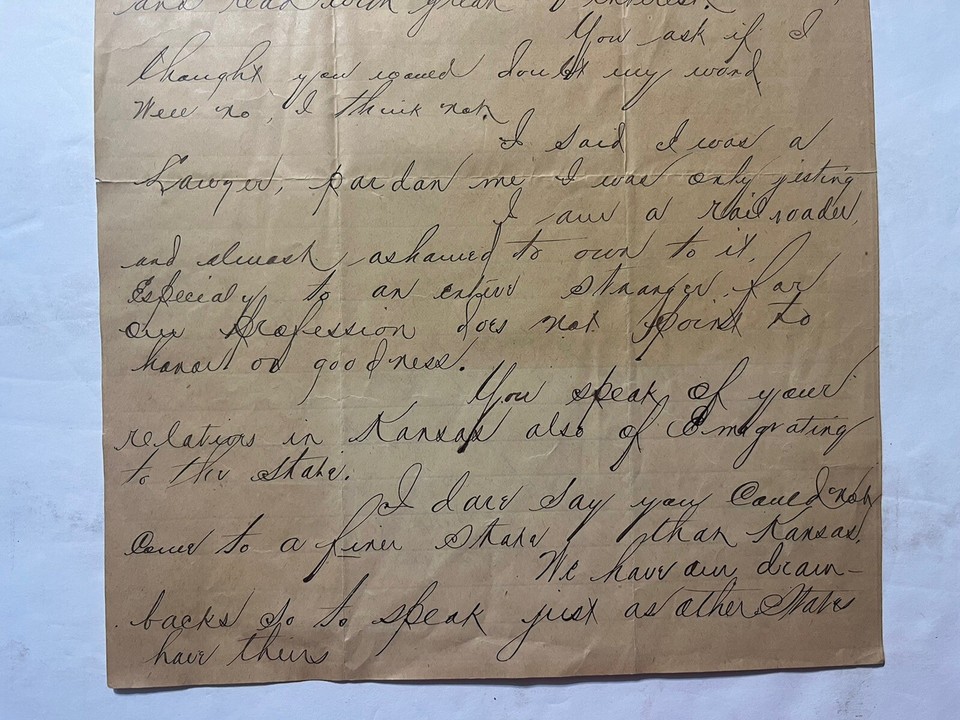 and read with great interest.
You ask if I
thought you would doubt my word
Well no, I think not.
I said I was a
Lawyer, pardan me I was only jesting
I am a railroader,
and almost ashamed to own to it,
Especialy to an entire stranger, for
our profession does not point to
honor or goodness.
You speak of your
relations in Kansas also of Emagrating
to the State.
I dare say you Could not
Come to a finer State than Kansas.
We have our draw-
backs so to speak just as other States
have theirs